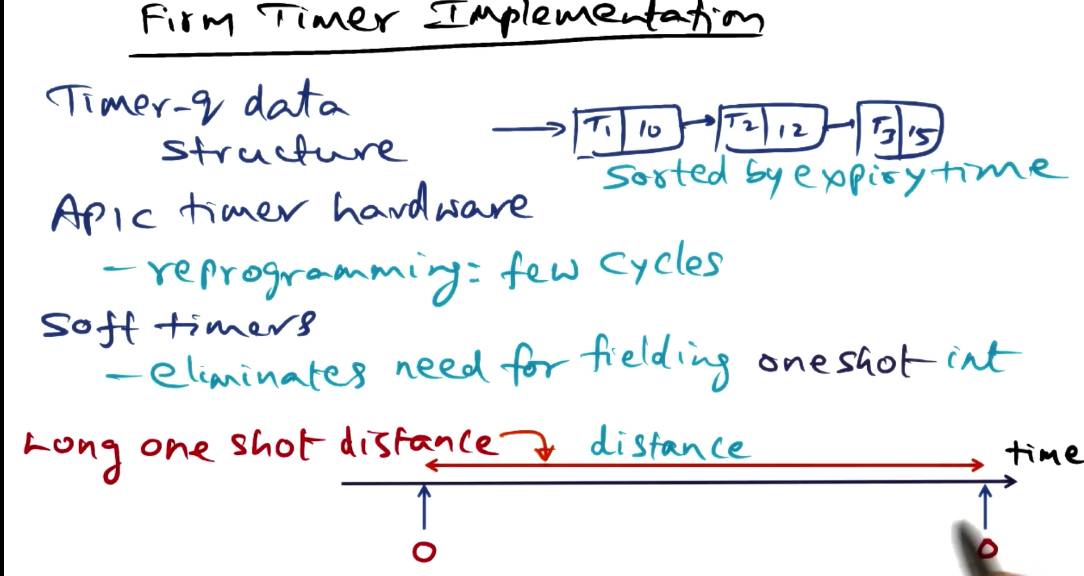 Firm Timer Implementation
Timer-q data
structure
T1 10 T2 12 T3 15
Sorted by expiry time
APIC timer hardware
- reprogramming: few cycles
Soft timers
- eliminates need for fielding one shot int
Long one shot distance distance
time
0 0